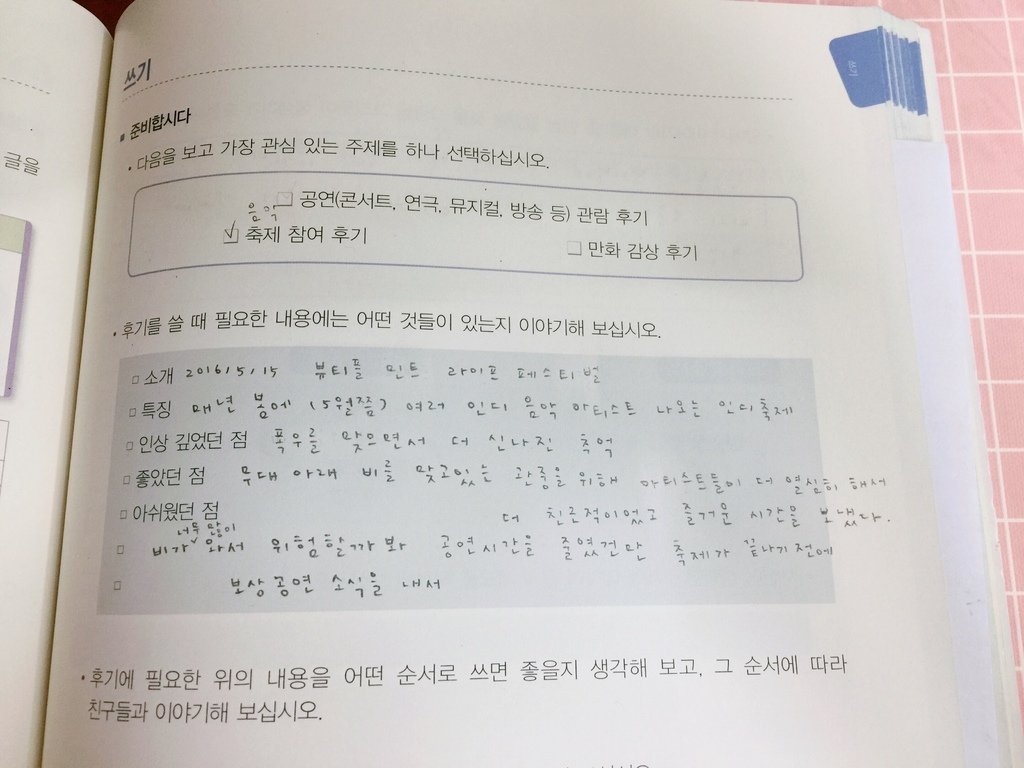 쓰기
쓰기
글을
■ 준비합시다
• 다음을 보고 가장 관심 있는 주제를 하나 선택하십시오.
□ 공연(콘서트, 연극, 뮤지컬, 방송 등) 관람 후기
음악
☑ 축제 참여 후기 □ 만화 감상 후기
• 후기를 쓸 때 필요한 내용에는 어떤 것들이 있는지 이야기해 보십시오.
□ 소개 2016/5/15 뷰티플 민트 라이프 페스티벌
□ 특징 매년 봄에 (5월쯤) 여러 인디 음악 아티스트 나오는 인디축제
□ 인상 깊었던 점 폭우를 맞으면서 더 신나진 추억
□ 좋았던 점 무대 아래 비를 맞고있는 관중을 위해 아티스트들이 더 열심히 해서
□ 아쉬웠던 점 더 친근적이었고 즐거운 시간을 보냈다.
너무 많이
□ 비가 ∨ 와서 위험할까봐 공연시간을 줄였건만 축제가 끝나기전에
□ 보상공연 소식을 내서
• 후기에 필요한 위의 내용을 어떤 순서로 쓰면 좋을지 생각해 보고, 그 순서에 따라
친구들과 이야기해 보십시오.